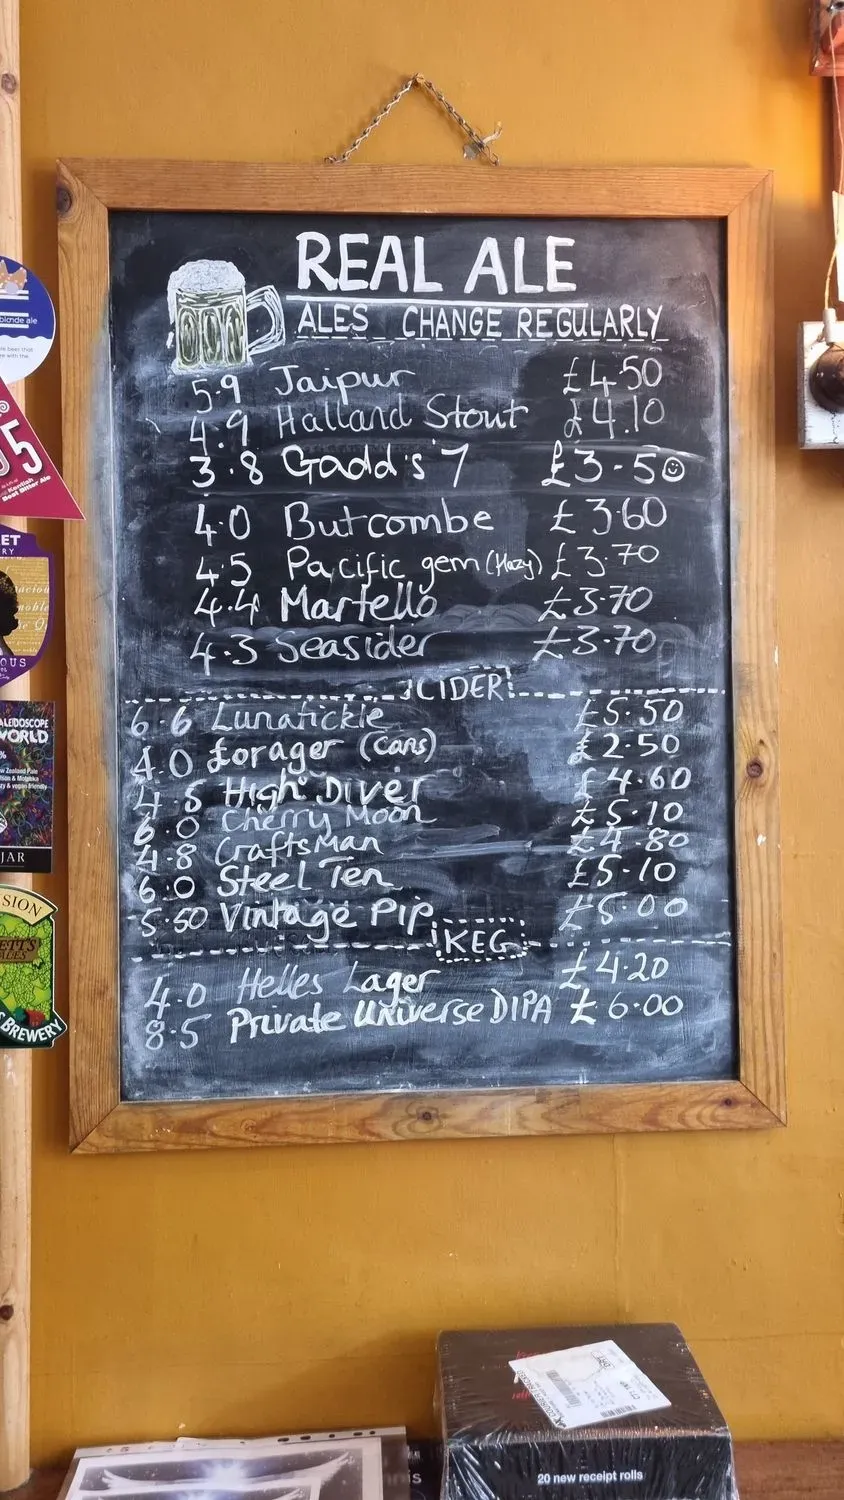 REAL ALE
ALES CHANGE REGULARLY
5.9 Jaipur £4.50
4.9 Halland Stout £4.10
3.8 Gadd's 7 £3.50
4.0 Butcombe £3.60
4.5 Pacific gem (Hazy) £3.70
4.4 Martello £3.70
4.3 Seasider £3.70
CIDER
6.6 Lunatickle £5.50
4.0 forager (cans) £2.50
4.5 High Diver £4.60
6.0 Cherry Moon £5.10
4.8 Craftsman £4.80
6.0 Steel Ten £5.10
5.50 Vintage Pip £5.00
KEG
4.0 Helles Lager £4.20
8.5 Private Universe DIPA £6.00
blonde ale
Kentish
Best Bitter Ale
WORLD
JAR
BREWERY
20 new receipt rolls